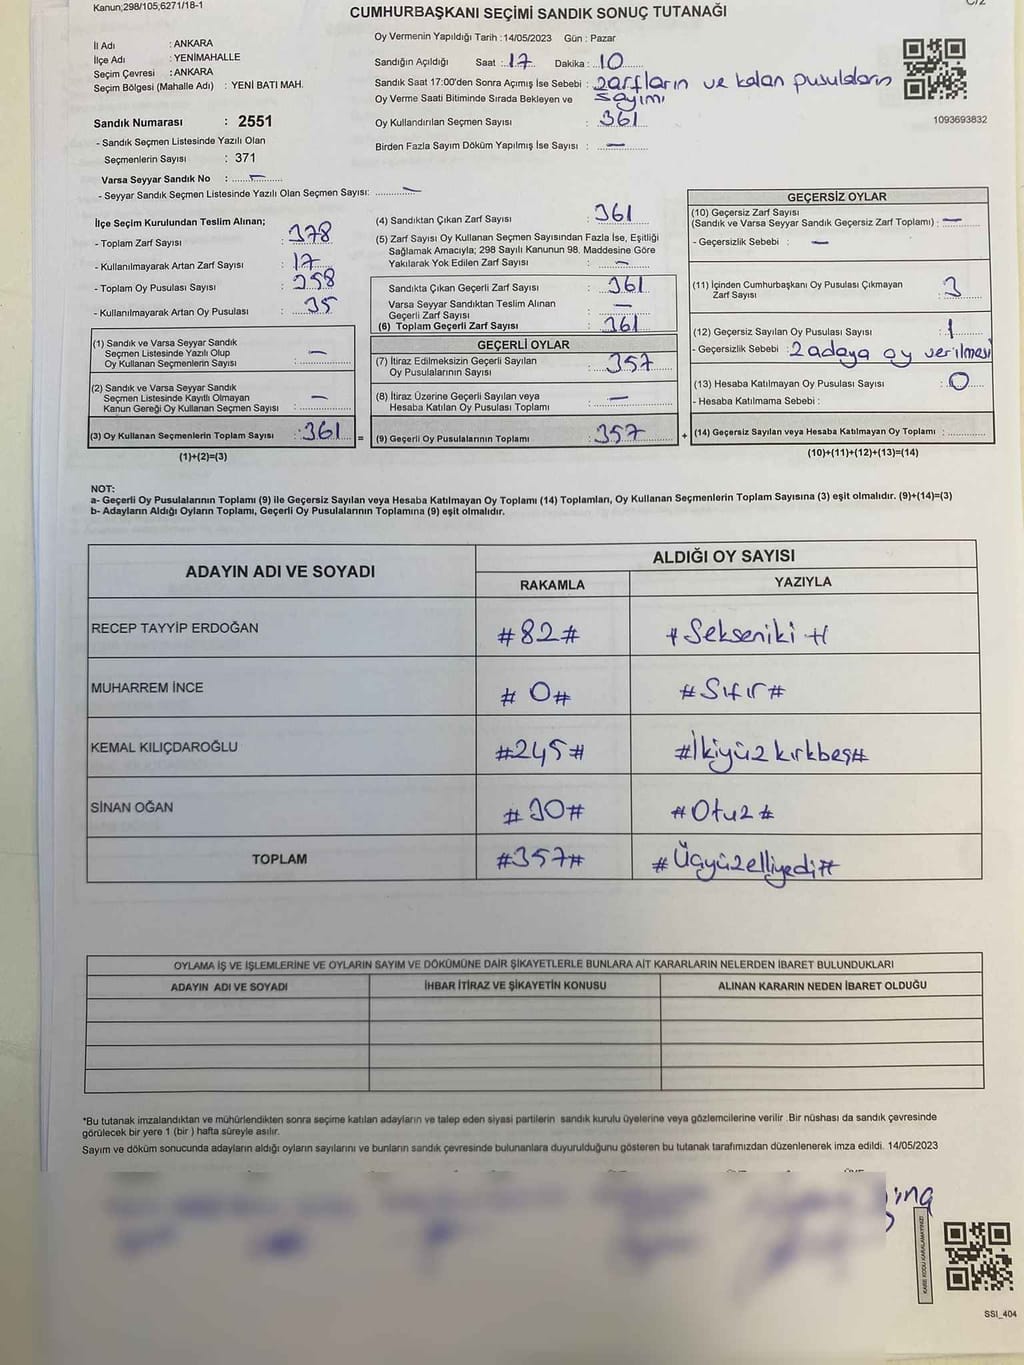 Kanun;298/105;6271/18-1
CUMHURBAŞKANI SEÇİMİ SANDIK SONUÇ TUTANAĞI
İl Adı : ANKARA
İlçe Adı : YENİMAHALLE
Seçim Çevresi : ANKARA
Seçim Bölgesi (Mahalle Adı) : YENİ BATI MAH.
Sandık Numarası : 2551
- Sandık Seçmen Listesinde Yazılı Olan
Seçmenlerin Sayısı : 371
Varsa Seyyar Sandık No : —
- Seyyar Sandık Seçmen Listesinde Yazılı Olan Seçmen Sayısı: —
Oy Vermenin Yapıldığı Tarih : 14/05/2023 Gün : Pazar
Sandığın Açıldığı Saat : 17 Dakika : 10
Sandık Saat 17:00'den Sonra Açımış İse Sebebi : zarfların ve kalan pusulaların
sayımı
Oy Verme Saati Bitiminde Sırada Bekleyen ve
Oy Kullandırılan Seçmen Sayısı : 361
Birden Fazla Sayım Döküm Yapılmış İse Sayısı : —
1093693832
İlçe Seçim Kurulundan Teslim Alınan;
- Toplam Zarf Sayısı : 378
- Kullanılmayarak Artan Zarf Sayısı : 17
- Toplam Oy Pusulası Sayısı :
- Kullanılmayarak Artan Oy Pusulası : 35
(1) Sandık ve Varsa Seyyar Sandık
Seçmen Listesinde Yazılı Olup
Oy Kullanan Seçmenlerin Sayısı : —
(2) Sandık ve Varsa Seyyar Sandık
Seçmen Listesinde Kayıtlı Olmayan
Kanun Gereği Oy Kullanan Seçmen Sayısı : —
(3) Oy Kullanan Seçmenlerin Toplam Sayısı : 361 =
(1)+(2)=(3)
(4) Sandıktan Çıkan Zarf Sayısı : 361
(5) Zarf Sayısı Oy Kullanan Seçmen Sayısından Fazla İse, Eşitliği
Sağlamak Amacıyla; 298 Sayılı Kanunun 98. Maddesine Göre
Yakılarak Yok Edilen Zarf Sayısı : —
Sandıkta Çıkan Geçerli Zarf Sayısı : 361
Varsa Seyyar Sandıktan Teslim Alınan
Geçerli Zarf Sayısı : —
(6) Toplam Geçerli Zarf Sayısı : 361
GEÇERLİ OYLAR
(7) İtiraz Edilmeksizin Geçerli Sayılan
Oy Pusulalarının Sayısı : 357
(8) İtiraz Üzerine Geçerli Sayılan veya
Hesaba Katılan Oy Pusulası Toplamı : —
(9) Geçerli Oy Pusulalarının Toplamı : 357 +
GEÇERSİZ OYLAR
(10) Geçersiz Zarf Sayısı
(Sandık ve Varsa Seyyar Sandık Geçersiz Zarf Toplamı) : —
- Geçersizlik Sebebi : —
(11) İçinden Cumhurbaşkanı Oy Pusulası Çıkmayan
Zarf Sayısı : 3
(12) Geçersiz Sayılan Oy Pusulası Sayısı : 1
- Geçersizlik Sebebi : 2 adaya oy verilmesi
(13) Hesaba Katılmayan Oy Pusulası Sayısı : 0
- Hesaba Katılmama Sebebi :
(14) Geçersiz Sayılan veya Hesaba Katılmayan Oy Toplamı :
(10)+(11)+(12)+(13)=(14)
NOT:
a- Geçerli Oy Pusulalarının Toplamı (9) ile Geçersiz Sayılan veya Hesaba Katılmayan Oy Toplamı (14) Toplamları, Oy Kullanan Seçmenlerin Toplam Sayısına (3) eşit olmalıdır. (9)+(14)=(3)
b- Adayların Aldığı Oyların Toplamı, Geçerli Oy Pusulalarının Toplamına (9) eşit olmalıdır.
ADAYIN ADI VE SOYADI ALDIĞI OY SAYISI
RAKAMLA YAZIYLA
RECEP TAYYİP ERDOĞAN #82# #Sekseniki#
MUHARREM İNCE #0# #Sıfır#
KEMAL KILIÇDAROĞLU #245# #İkiyüzkırkbeş#
SİNAN OĞAN #30# #Otuz#
TOPLAM #357# #Üçyüzelliyedi#
OYLAMA İŞ VE İŞLEMLERİNE VE OYLARIN SAYIM VE DÖKÜMÜNE DAİR ŞİKAYETLERLE BUNLARA AİT KARARLARIN NELERDEN İBARET BULUNDUKLARI
ADAYIN ADI VE SOYADI İHBAR İTİRAZ VE ŞİKAYETİN KONUSU ALINAN KARARIN NEDEN İBARET OLDUĞU
*Bu tutanak imzalandıktan ve mühürlendikten sonra seçime katılan adayların ve talep eden siyasi partilerin sandık kurulu üyelerine veya gözlemcilerine verilir .Bir nüshası da sandık çevresinde
görülecek bir yere 1 (bir ) hafta süreyle asılır.
Sayım ve döküm sonucunda adayların aldığı oyların sayılarını ve bunların sandık çevresinde bulunanlara duyurulduğunu gösteren bu tutanak tarafımızdan düzenlenerek imza edildi. 14/05/2023
KARE KODU KARALAMAYINIZ!
SSI_404